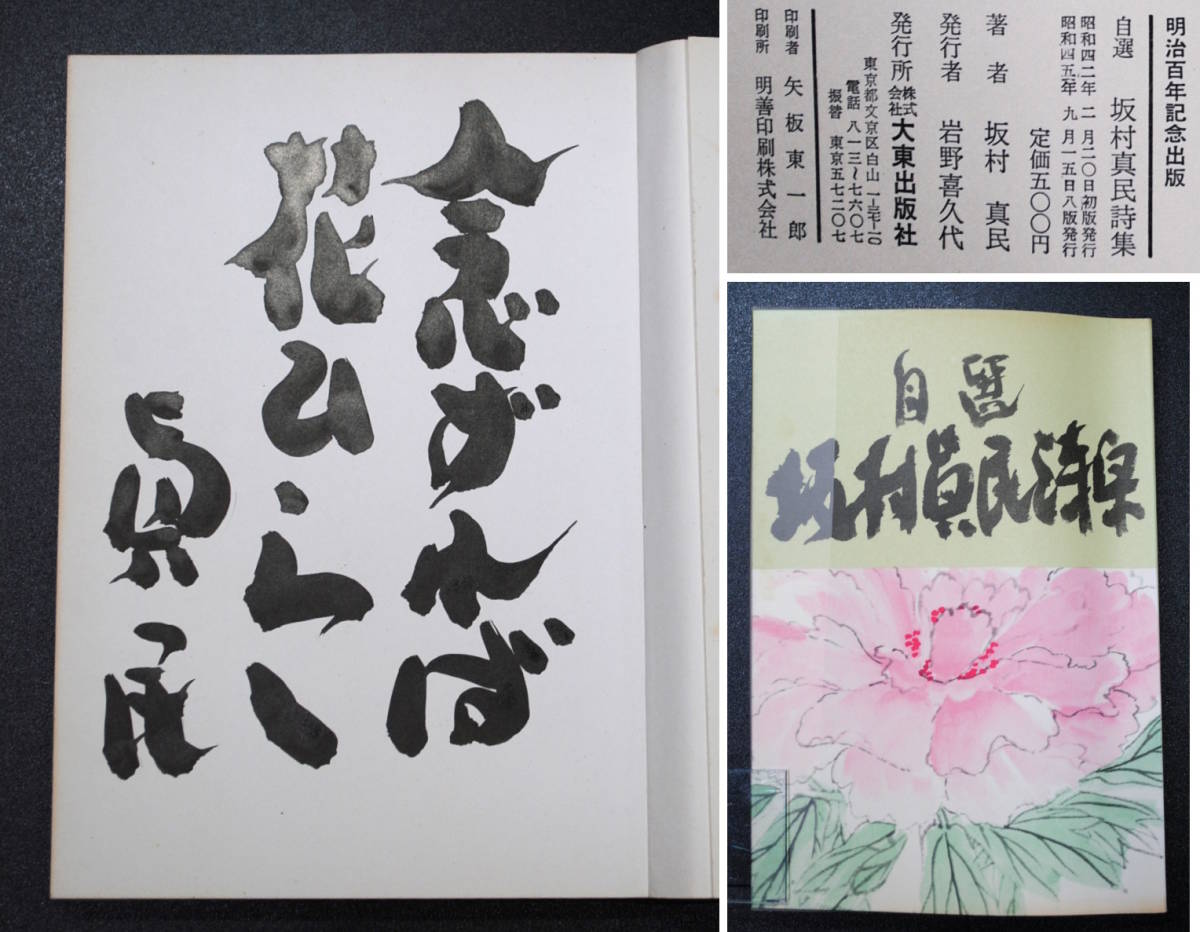 念ずれば
花ひらく
真民
明治百年記念出版
自選 坂村真民詩集
昭和四二年 二 月二〇日初版発行
昭和四五年 九 月一五日八版発行
定価五〇〇円
著者 坂村 真民
発行者 岩野喜久代
発行所 株式会社 大東出版社
東京都文京区白山 一-三七-一〇
電話 八一三~七六〇七
振替 東京五七二〇七
印刷者 矢板東一郎
印刷所 明善印刷株式会社
自選
坂村真民詩集